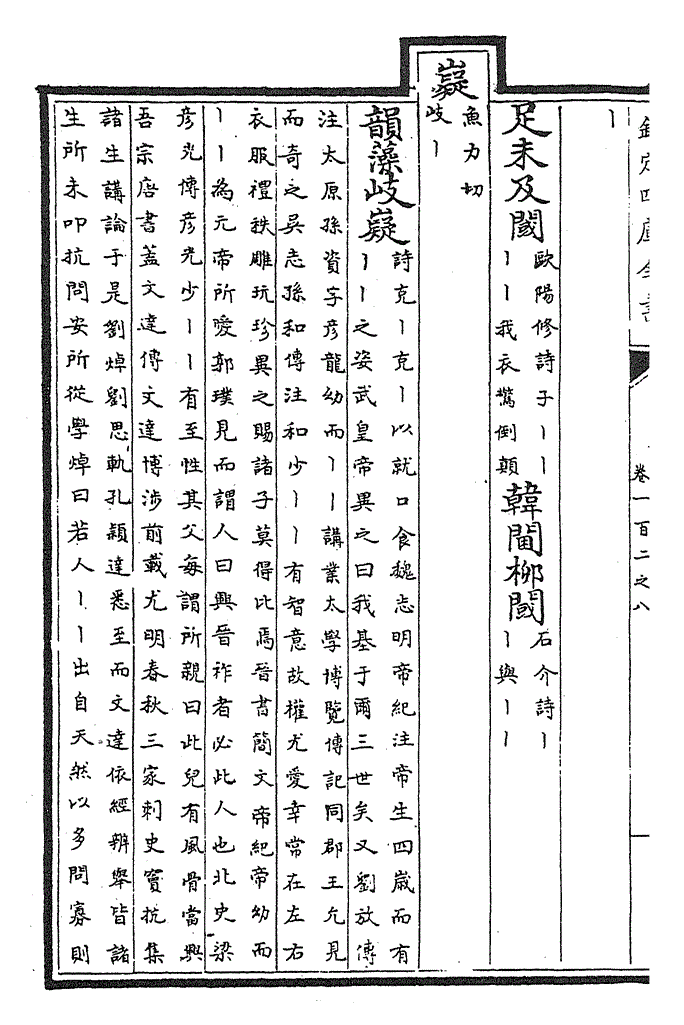 欽定四庫全書
卷一百二之八
丨
足未及閾
歐陽修詩子丨丨
丨丨我衣驚倒顛
韓閫柳閾
石介詩丨
丨與丨丨
嶷
魚力切
岐丨
韻藻岐嶷
詩克丨克丨以就口食魏志明帝紀注帝生四歲而有
丨丨之姿武皇帝異之曰我基于爾三世矣又劉放傳
注太原孫資字彥龍幼而丨丨講業太學博覽傳記同郡王允見
而奇之吳志孫和傳注和少丨丨有智意故權尤愛幸常在左右
衣服禮秩雕玩珍異之賜諸子莫得比焉晉書簡文帝紀帝幼而
丨丨為元帝所愛郭璞見而謂人曰興晉祚者必此人也北史梁
彥光傳彥光少丨丨有至性其父每謂所親曰此兒有風骨當興
吾宗唐書蓋文達傳文達博涉前載尤明春秋三家刺史竇抗集
諸生講論于是劉焯劉思軌孔穎達悉至而文達依經辨舉皆諸
生所未叩抗問安所從學焯曰若人丨丨出自天然以多問寡則